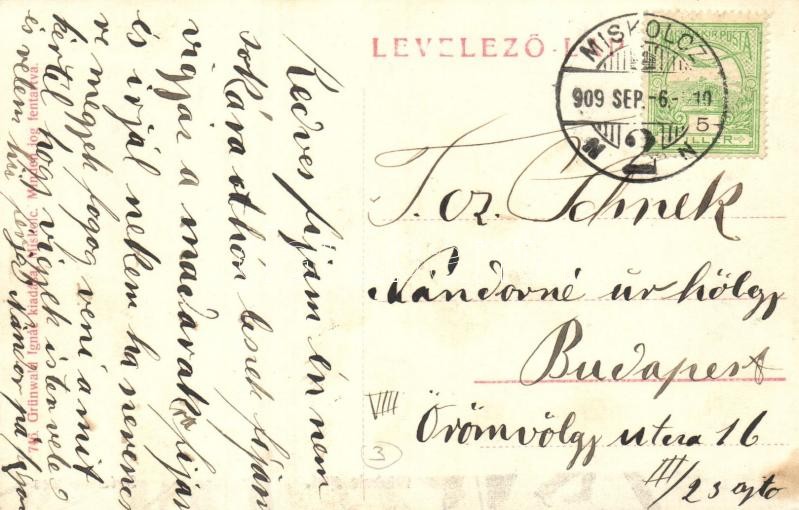 LEVELEZŐ-L
MISKOLCZ
909 SEP.-6.- 10
KIR. POSTA
5
FILLÉR
T. cz. Schnek
Nándorné úr hölgy
Budapest
VIII
Örömvölgy utcza 16
III/23 ajtó
3
Kedves fijam én nem
sokára othón leszek fijam
vigyáz a madárak fijam
és irjál nekem ha szerencs
ve megyek fogog veni a mit
kértél hogy vigyek isten vele
és velem hű Nándor pa
Grünwald Ignác kiadása, Miskolc. Minden jog fentartva.